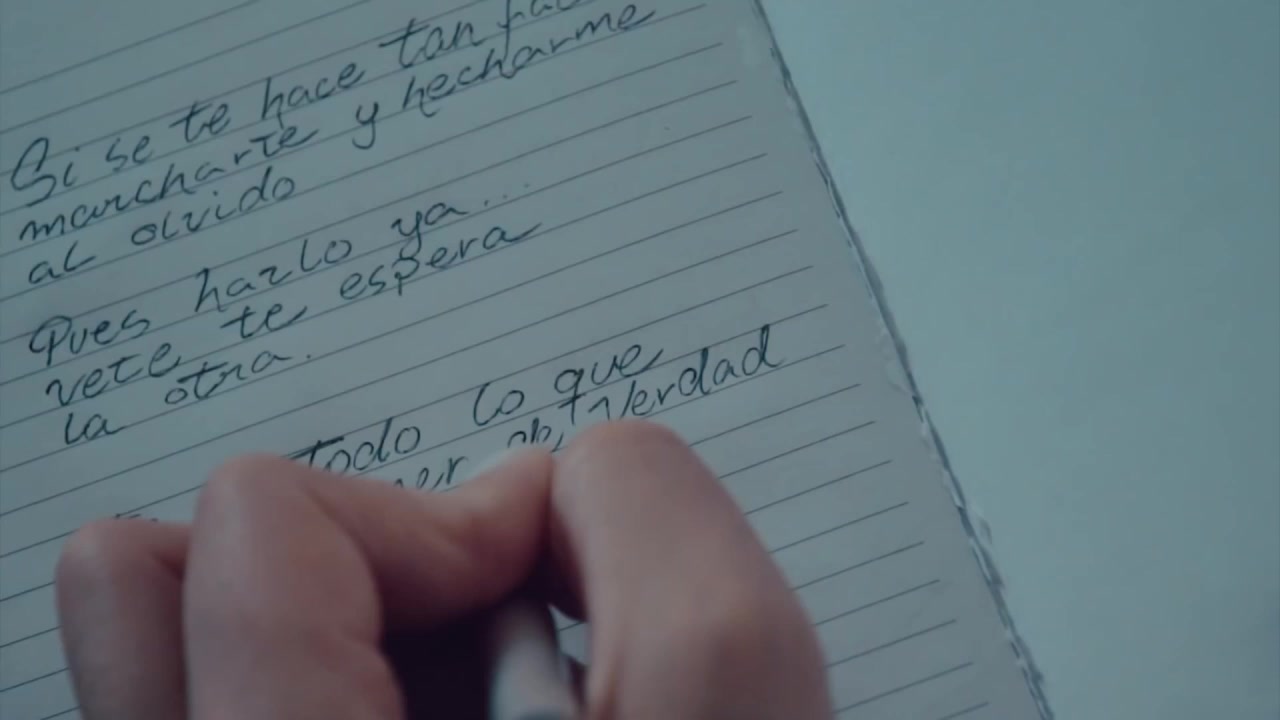 Si se te hace tan
marcharte y hecharme
al olvido
Pues hazlo ya...
vete te espera
la otra.
Todo lo que
de Verdad